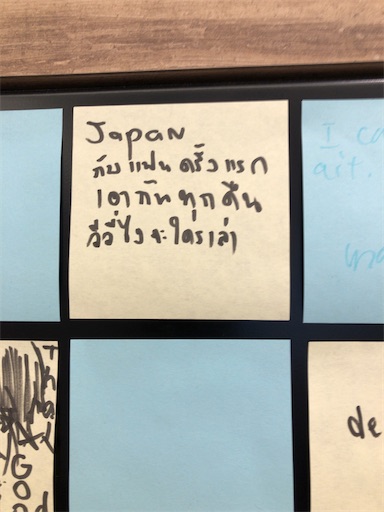 Japan
กับแฟนครั้งแรก
เอากันทุกคืน
วีวี่ไง จะใครล่า
I ca
art.
de